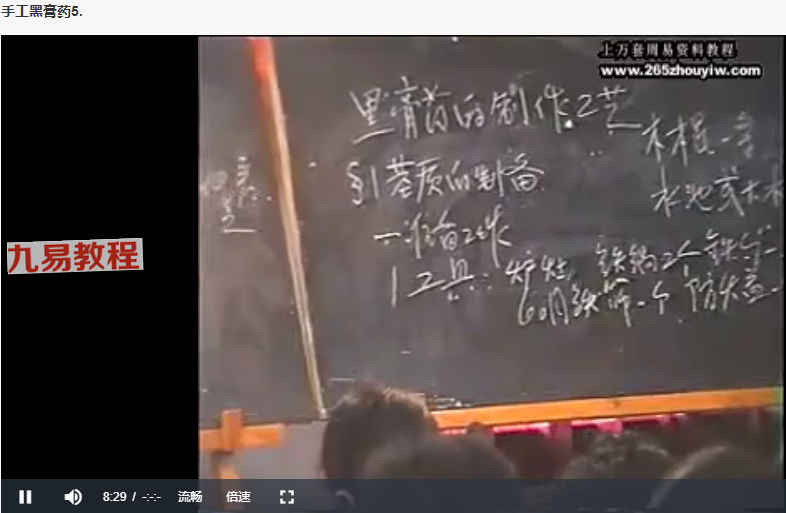 手工黑膏药5.
上万套周易资料教程
www.265zhouyiw.com
黑膏药的制作工艺
§1基质的制备
一准备工作
1工具: 炉灶, 铁锅2个 铁勺一
60目铁筛一个 防火盖一
木棍一
水池或大水
九易教程
8:29 / -:-:- 流畅 倍速